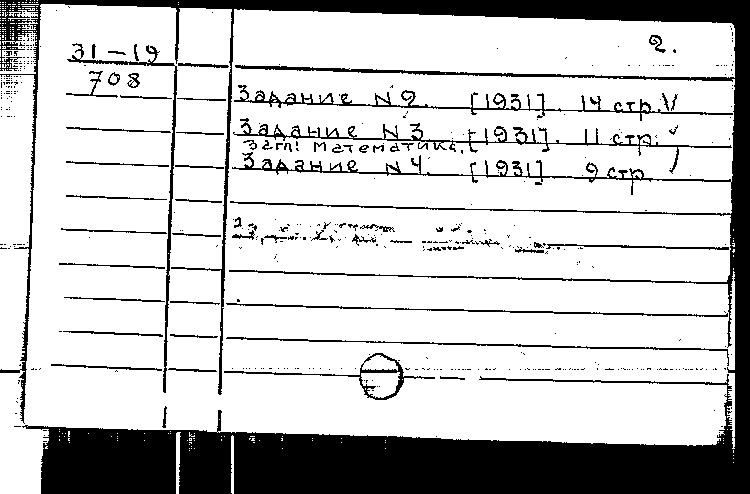 2.
31-19
708
Задание N 2. [1931]. 14 стр. V
Задание N 3 [1931]. 11 стр.
Загл: Математика.
Задание N 4. [1931] 9 стр.